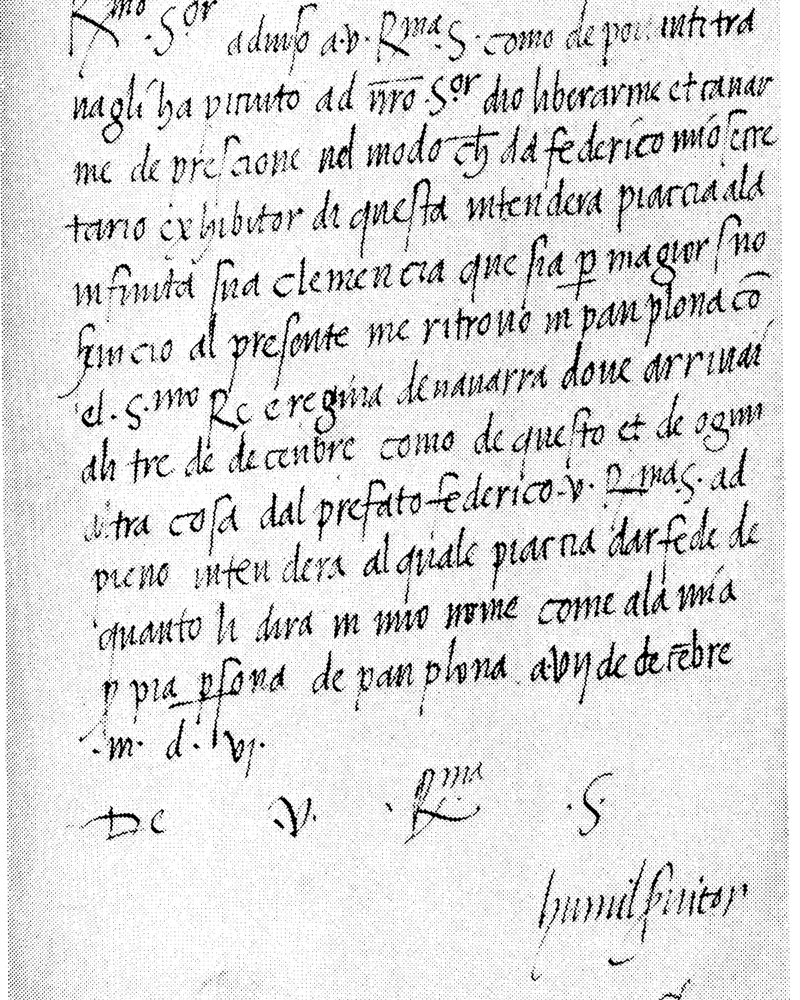 Rmo .Sor aduiso a.v. Rma. S. como de poi tra
uagli ha piciuto ad nr̄o .Sor dio liberarme et cauar
me de presCione nel modo ch̄ da federico mio secre
tario exhibitor di questa intendera piaccia ala
infinita sua clemencia que sia ꝑ magior suo
seruicio al presente me ritrouo in panplona cō
el .S.mo Re e regina de nauarra doue arriuai
ali tre de decenbre como de questo et de ogni
altra cosa dal prefato federico .v. Rma S. ad
pieno intendera al quale piaccia dar fede de
quanto li dira in mio nome come ala mia
ꝓpia ꝑsona de panplona a vij de decēbre
.m. d. vj.
De V. Rma .S.
humil seruitor